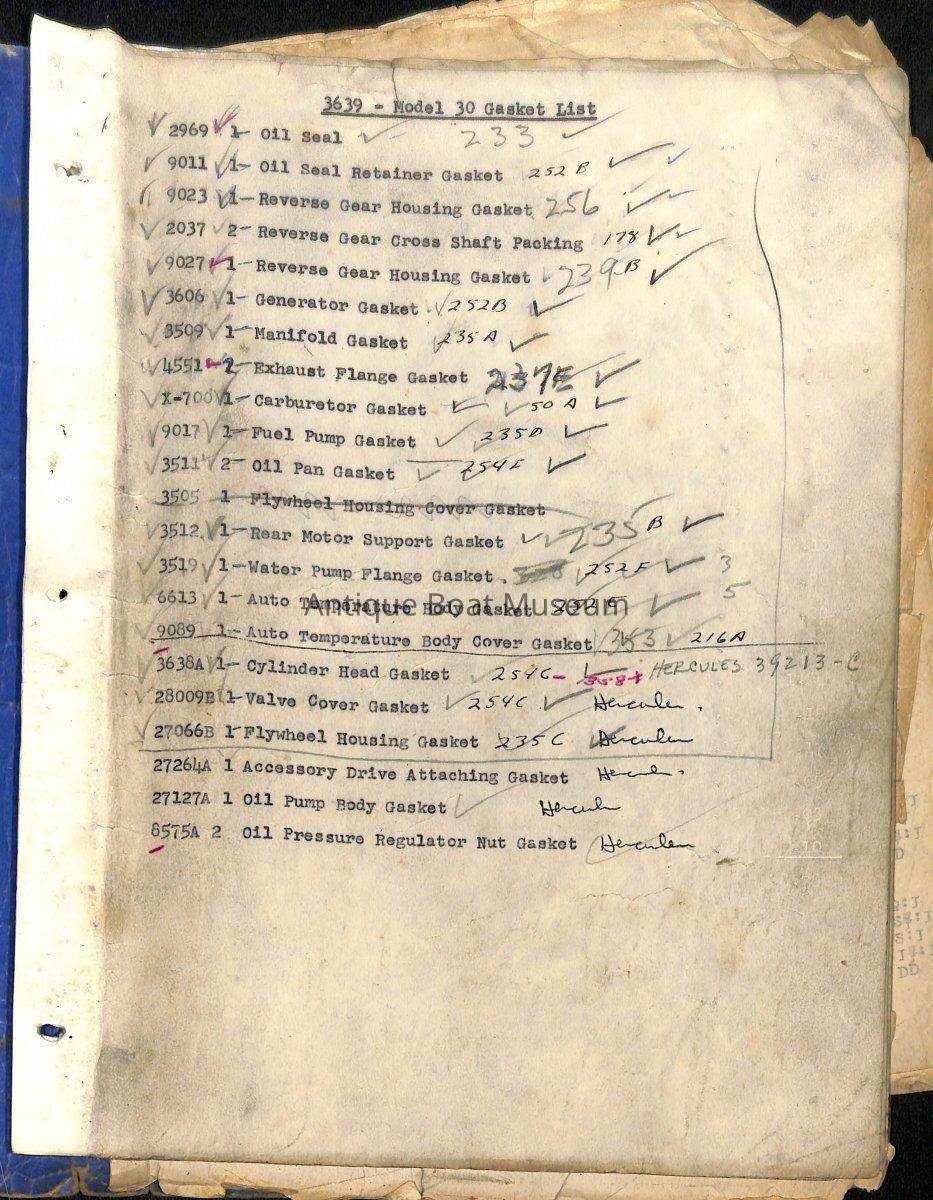 3639 - Model 30 Gasket List
2969 1- Oil Seal 233
9011 1- Oil Seal Retainer Gasket 252 B
9023 1- Reverse Gear Housing Gasket 256
2037 2- Reverse Gear Cross Shaft Packing 178
9027 1- Reverse Gear Housing Gasket 239 B
3606 1- Generator Gasket 252B
3509 1- Manifold Gasket 235 A
4551 2- Exhaust Flange Gasket 237E
X-700 1- Carburetor Gasket 50 A
9017 1- Fuel Pump Gasket 235D
3511 2- Oil Pan Gasket 254 E
3505 1 - Flywheel Housing Cover Gasket
3512 1- Rear Motor Support Gasket 235 B
3519 1- Water Pump Flange Gasket 252 F 3
6613 1- Auto Temperature Body Gasket 5
Antique Boat Museum
9089 1- Auto Temperature Body Cover Gasket 353 216A
3638A 1- Cylinder Head Gasket 254C- HERCULES 39213-C
28009B 1- Valve Cover Gasket 254C Hercules.
27066B 1 Flywheel Housing Gasket 235C Hercules
27264A 1 Accessory Drive Attaching Gasket Hercules.
27127A 1 Oil Pump Body Gasket Hercules
8575A 2 Oil Pressure Regulator Nut Gasket Hercules